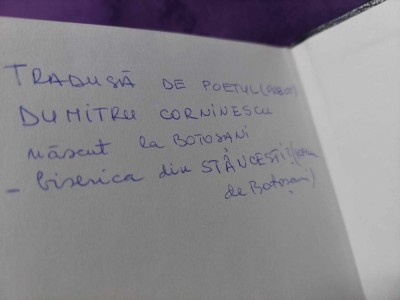 TRADUSĂ DE POETUL (PREOT)
DUMITRU CORNINESCU
născut la BOTOȘANI
- biserica din STÂNCEȘTI! (lângă
de Botoșani)